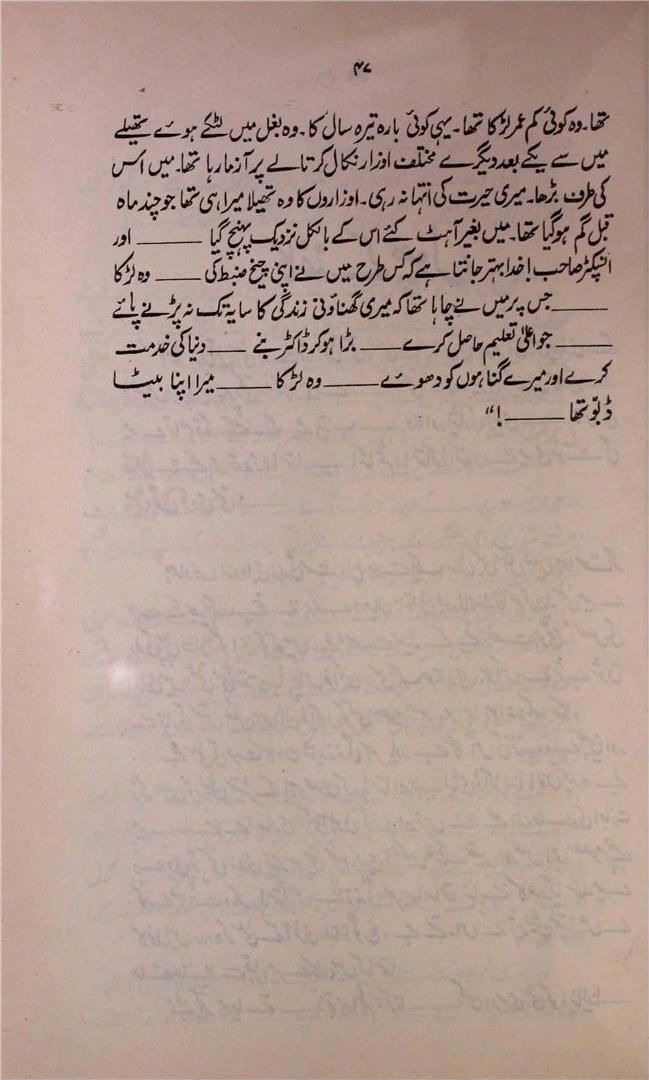 ۴۷
تھا۔ وہ کوئی کم عمر لڑکا تھا۔ یہی کوئی بارہ تیرہ سال کا۔ وہ بغل میں لٹکے ہوئے تھیلے
میں سے یکے بعد دیگرے مختلف اوزار نکال کر تالے پر آزما رہا تھا۔ میں اس
کی طرف بڑھا۔ میری حیرت کی انتہا نہ رہی۔ اوزاروں کا وہ تھیلا میرا ہی تھا جو چند ماہ
قبل گم ہو گیا تھا۔ میں بغیر آہٹ کئے اس کے بالکل نزدیک پہنچ گیا ——— اور
انسپکٹر صاحب! خدا بہتر جانتا ہے کہ کس طرح میں نے اپنی چیخ ضبط کی ——— وہ لڑکا
——— جس پر میں نے چاہا تھا کہ میری گھناؤنی زندگی کا سایہ تک نہ پڑنے پائے
——— جو اعلیٰ تعلیم حاصل کرے ——— بڑا ہو کر ڈاکٹر بنے ——— دنیا کی خدمت
کرے اور میرے گناہوں کو دھوئے ——— وہ لڑکا ——— میرا اپنا بیٹا
ڈبّو تھا ———!"